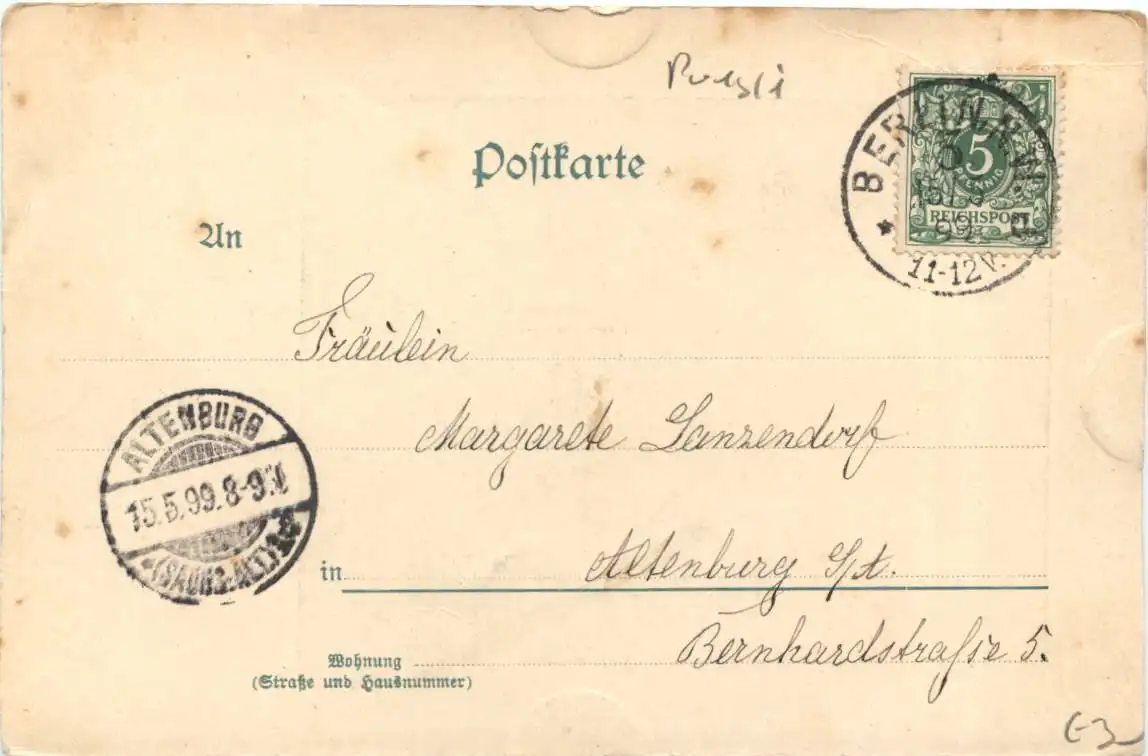 Postkarte
BERLIN, N.W.
5
PFENNIG
15
REICHSPOST
11-12V.
An
Fräulein
Margarete Lanzendorf
ALTENBURG
15.5.99.8-9
(SACHS.ALT)
in Altenburg S/A.
Bernhardstraße 5.
Wohnung
(Straße und Hausnummer)